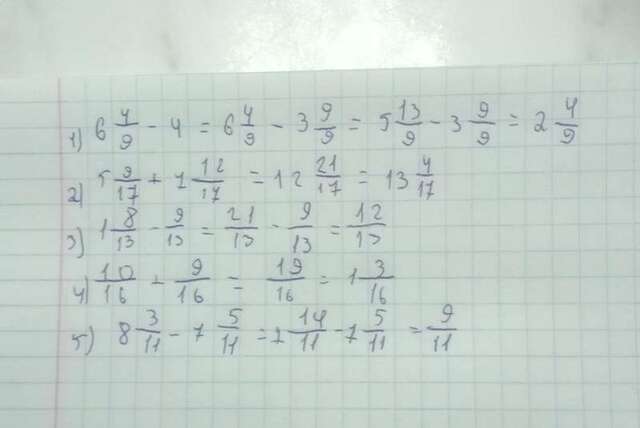 1) 6 4/9 - 4 = 6 4/9 - 3 9/9 = 5 13/9 - 3 9/9 = 2 4/9
2) 5 9/17 + 7 12/17 = 12 21/17 = 13 4/17
3) 1 8/13 - 9/13 = 21/13 - 9/13 = 12/13
4) 10/16 + 9/16 = 19/16 = 1 3/16
5) 8 3/11 - 7 5/11 = 7 14/11 - 7 5/11 = 9/11